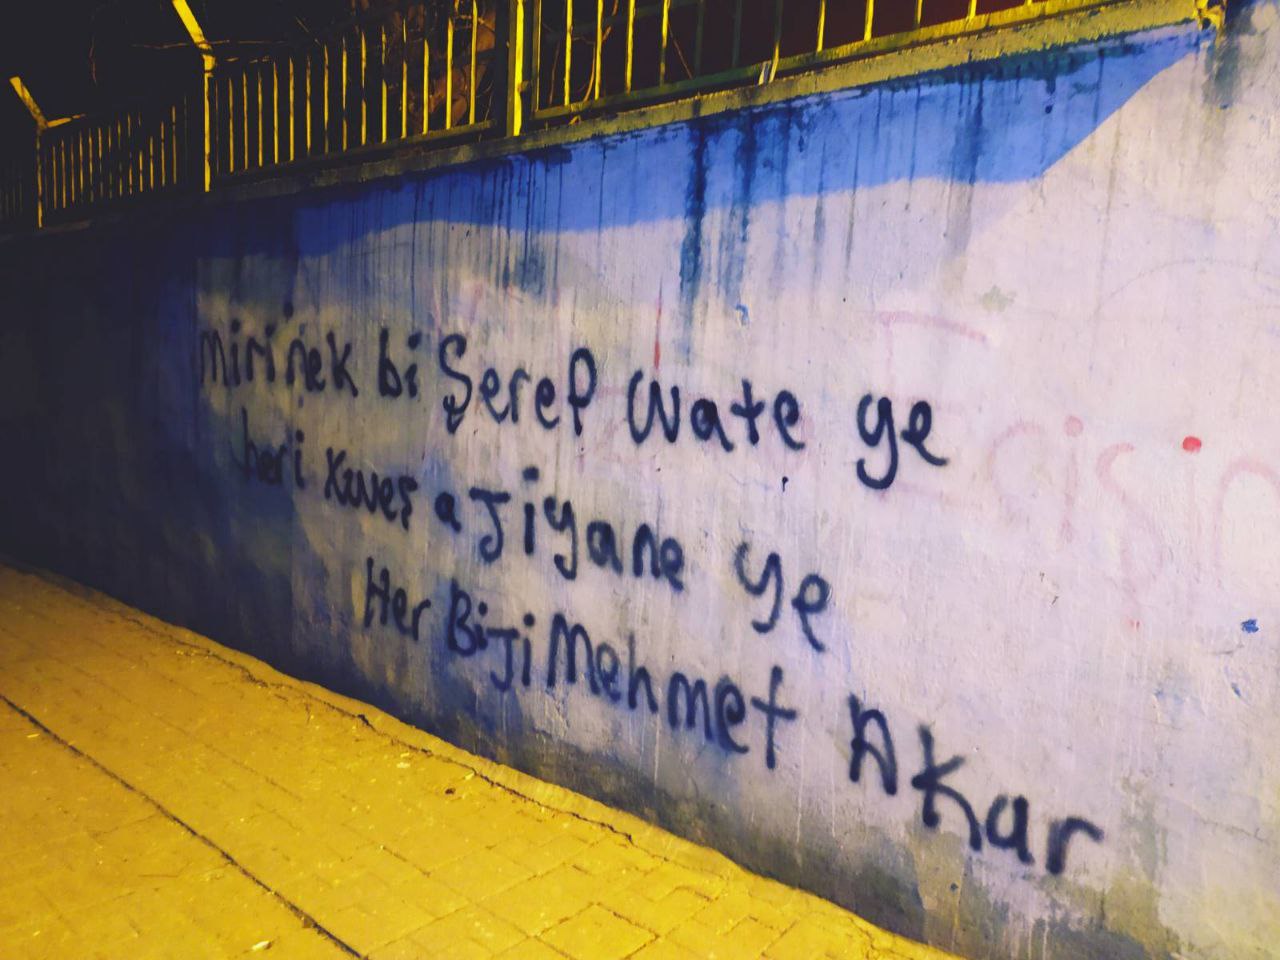 mirinek bi Şeref wate ye
heri xweş a Jiyane ye
Her Biji Mehmet Akar